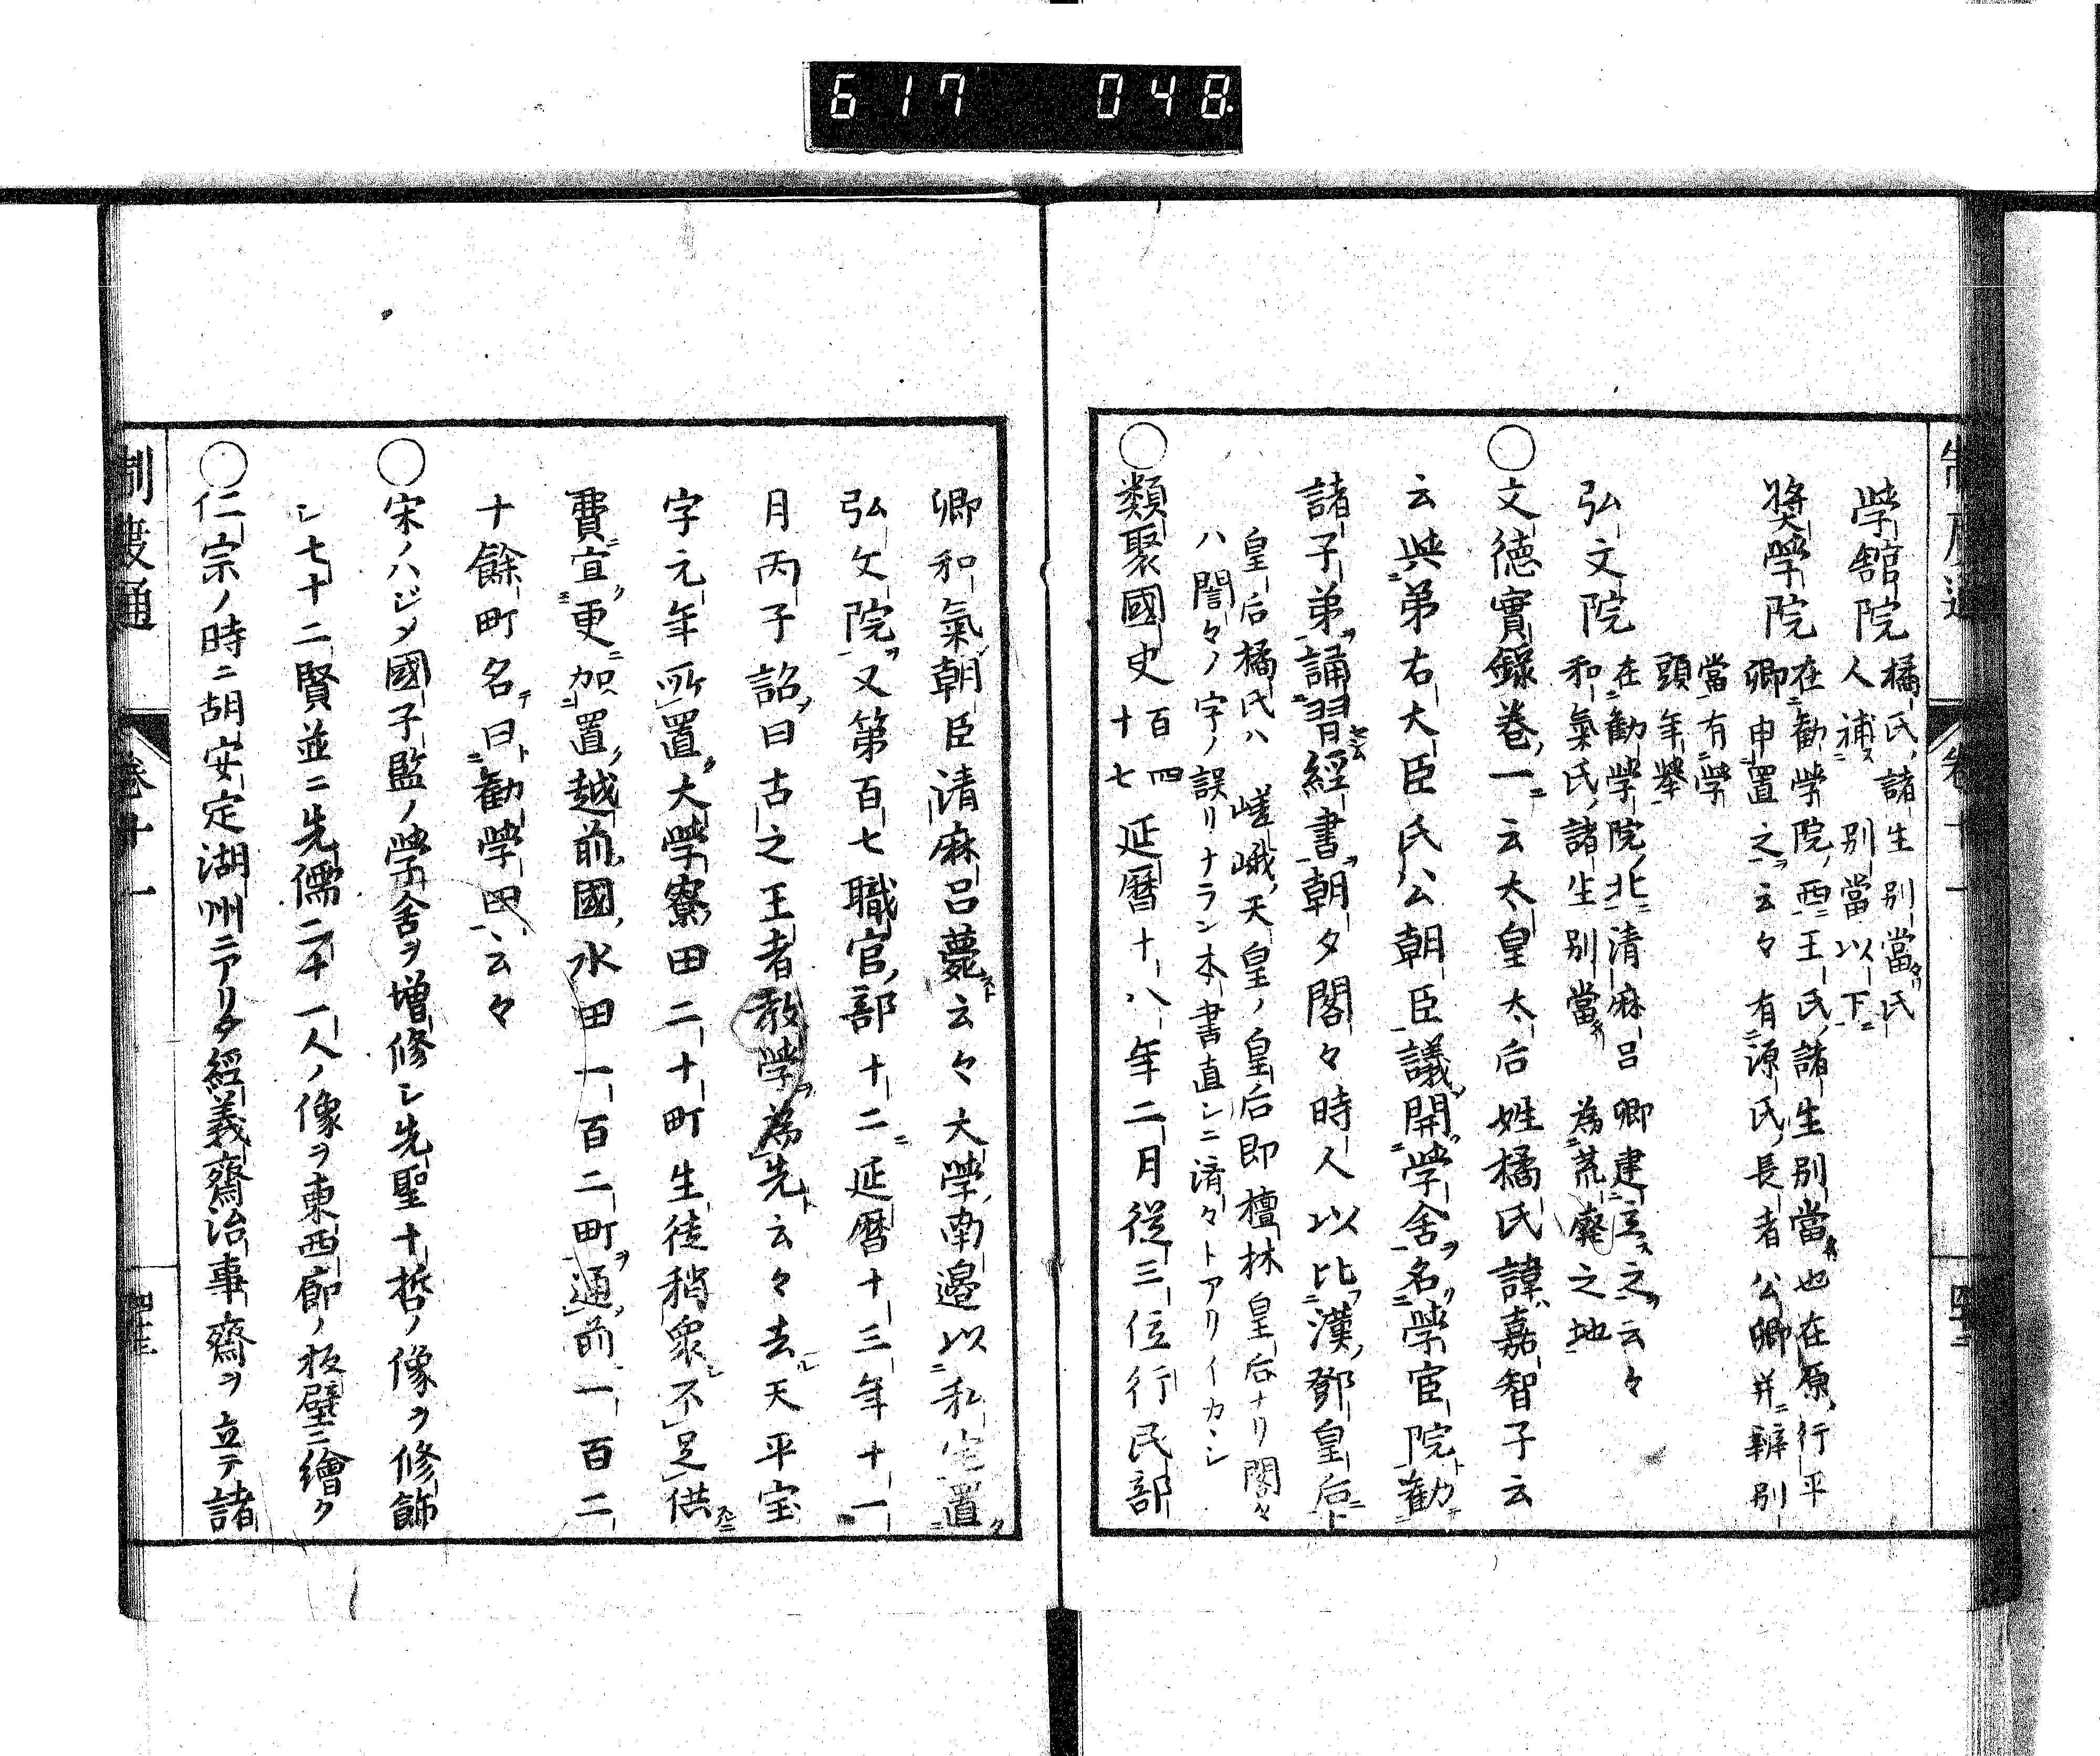 617 048
學舘院 橘氏諸生別當氏
人補別當以下
奬學院 在勸學院西王氏諸生別當也在原行平
卿申置之云々有源氏長者公卿并辨別
當有學
頭年擧
弘文院 在勸學院北清麻呂卿建立之云々
和氣氏諸生別當為荒廢之地
○文徳實録卷一云太皇太后姓橘氏諱嘉智子云
云與弟右大臣氏公朝臣議開學舍名學官院勸
諸子弟誦習經書朝夕誾々時人以比漢鄧皇后
皇后橘氏ハ嵯峨天皇ノ皇后即檀林皇后ナリ誾々
ハ誾々ノ字ノ誤リナラン本書直シニ済々トアリイカンシ
○類聚國史百四十七延暦十八年二月従三位行民部
卿和氣朝臣清麻呂薨云々大學南邊以私宅置
弘文院又第百七職官部十二延暦十三年十一
月丙子詔曰古之王者教學為先云々去天平宝
字元年所置大學寮田二十町生徒稍衆不足供
費宜更加置越前國水田一百二町通前一百二
十餘町名曰勸學田云々
○宋ノハジメ國子監ノ學舍ヲ増修シ先聖十哲ノ像ヲ修飾
シ七十二賢並ニ先儒二十一人ノ像ヲ東西廊ノ板壁ニ繪ク
○仁宗ノ時ニ胡安定湖州ニアリタ經義齋治事齋ヲ立テ諸
制度通 卷十一